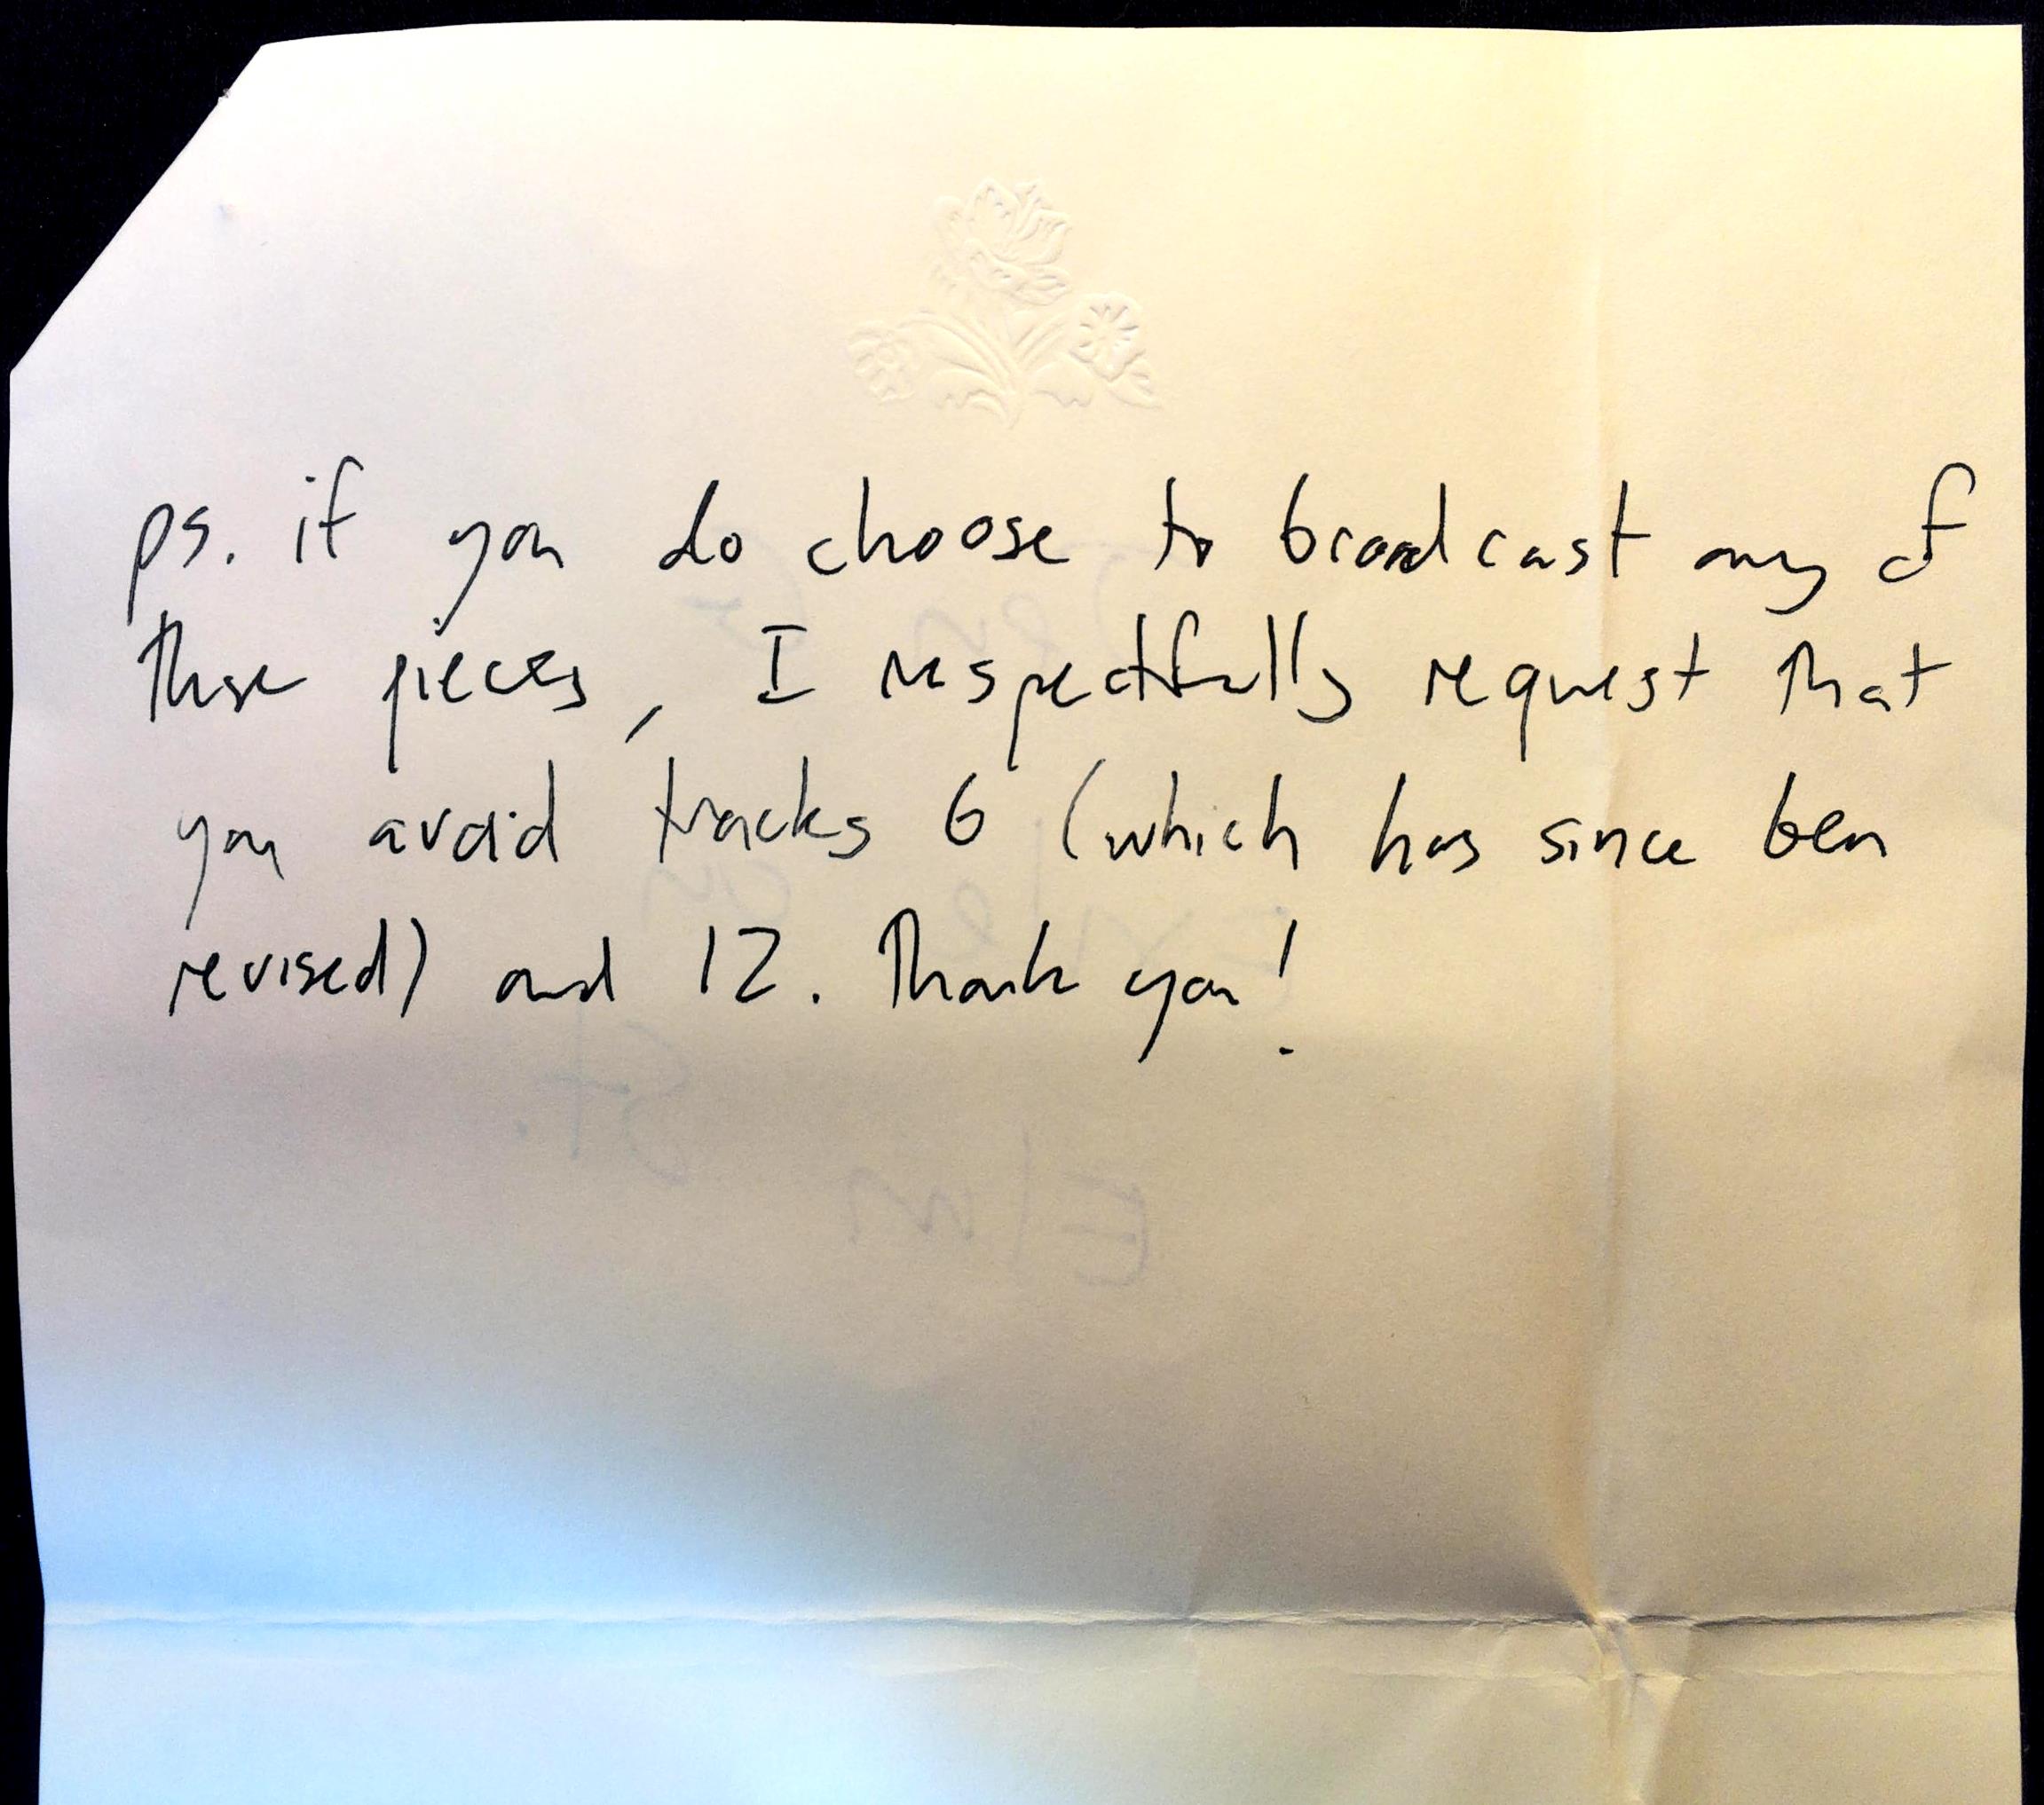 ps. if you do choose to broadcast any of
these pieces, I respectfully request that
you avoid tracks 6 (which has since been
revised) and 12. Thank you!
Elm St.